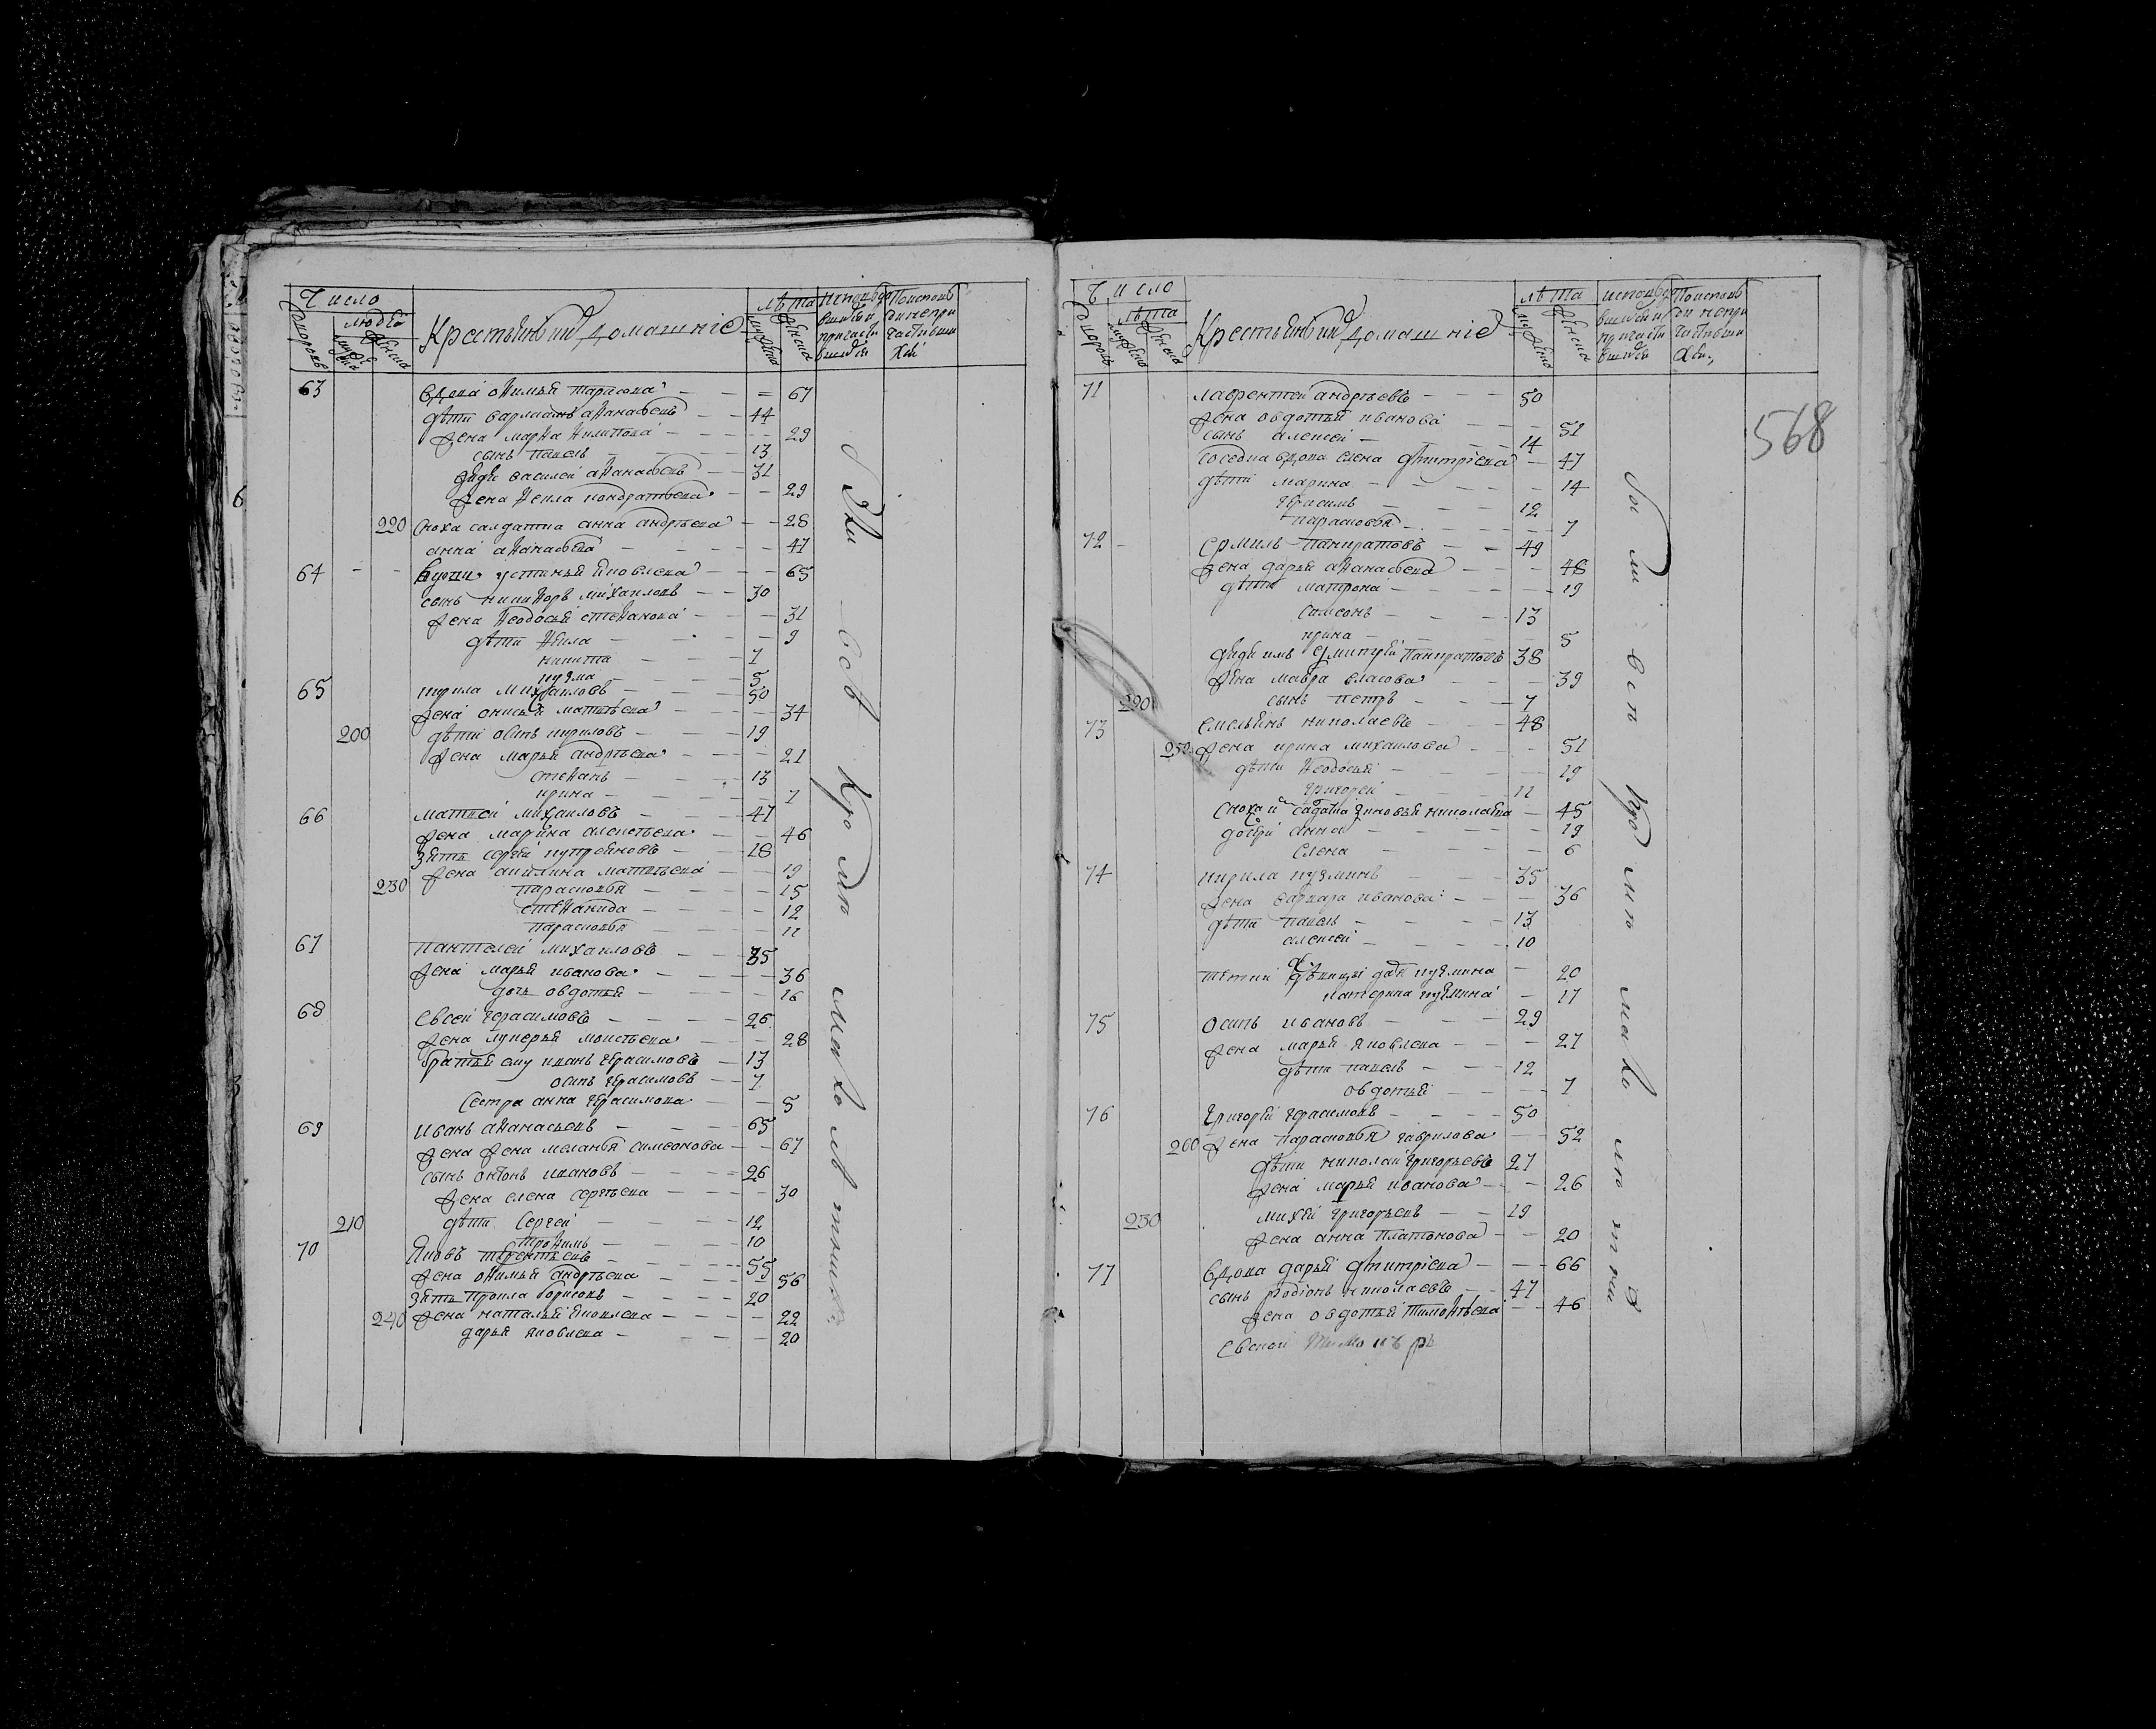 Число
людей
Крестьяне и ихъ домашніе
лѣта
63 вдова Афимья тарасова 67
дѣти варламъ афанасьевъ 44
жена марфа филипова 29
сынъ павелъ 13
дядя василей афанасьевъ 31
жена фекла кондратьева 29
220 сноха салдатка анна андрѣева 28
анна афанасьева 47
64 вдова устинья яковлева 65
сынъ никифоръ михаиловъ 30
жена феодосья стефанова 31
дѣти фекла 9
никита 7
кузма 5
65 кирила михаиловъ 50
жена онисья матвѣева 34
200 дѣти осипъ кириловъ 19
жена марья андрѣева 21
стефанъ 13
ирина 7
66 матвей михаиловъ 47
жена марина алексѣева 46
зять сергѣй купреяновъ 18
жена акилина матвѣева 19
230 парасковья 15
стефанида 12
парасковья 11
67 пантелей михаиловъ 35
жена марья иванова 36
дочь овдотья 16
68 евсей герасимовъ 26
жена лукерья моисѣева 28
братья ему иванъ герасимовъ 13
осипъ герасимовъ 7
сестра анна герасимова 5
69 иванъ афанасьевъ 65
жена жена меланья симеонова 67
сынъ антонъ ивановъ 26
жена елена сергѣева 30
210 дѣти сергей 12
трофимъ 10
70 яковъ терентьевъ 55
жена офимья андрѣева 56
зять фрола борисовъ 20
240 жена наталья яковлева 22
дарья яковлева 20
Число
лѣта
Крестьяне и ихъ домашніе
лѣта
568
71 лаврентей андрѣевъ 50
жена овдотья иванова 51
сынъ алексей 14
соседка вдова елена дмитріева 47
дѣти марина 14
герасимъ 12
парасковья 7
72 ермилъ панкратовъ 49
жена дарья афанасьева 48
дѣти матрона 19
симеонъ 13
ирина 5
дядя имъ дмитрѣй панкратовъ 38
жена мавра власова 39
220 сынъ петръ 7
73 емельянъ николаевъ 48
250 жена ирина михаилова 51
дѣти феодосья 19
григорей 11
сноха и салдатка зиновья николаева 45
дочери анна 19
елена 6
74 кирила кузминъ 35
жена варвара иванова 36
дѣти павелъ 13
алексей 10
дѣвицы кузмина 20
катерина кузмина 17
75 осипъ ивановъ 29
жена марья яковлева 27
дѣти павелъ 12
овдотья 7
76 григорѣй герасимовъ 50
260 жена парасковья гаврилова 52
дѣти николай григорьевъ 27
жена марья иванова 26
230 михѣй григорьевъ 19
жена анна платонова 20
77 вдова дарья дмитріева 66
сынъ родіонъ николаевъ 47
жена овдотья тимофѣева 46